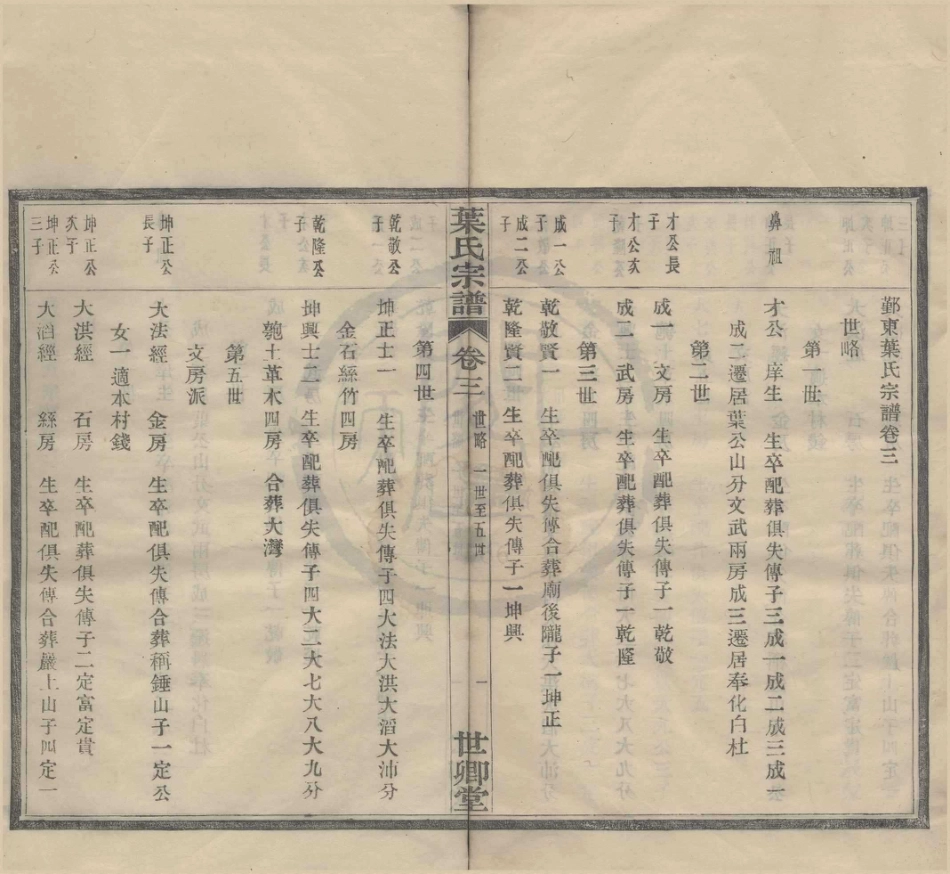 鄞東葉氏宗譜卷三
世略
第一世
鼻祖
才公 庠生 生卒配葬俱失傳子三成一成二成三成一
成二遷居葉公山分文武兩房成三遷居奉化白杜
第二世
才公長
子
成一 文房 生卒配葬俱失傳子一乾敬
才公次
子
成二 武房 生卒配葬俱失傳子一乾隆
第三世
成一公
子
乾敬賢一 生卒配俱失傳合葬廟後隴子一坤正
成二公
子
乾隆賢二 生卒配葬俱失傳子一坤興
葉氏宗譜 卷三 世略 一世至五世 一 世卿堂
第四世
乾敬公
子
坤正士一 生卒配葬俱失傳子四大法大洪大滔大沛分
金石絲竹四房
乾隆公
子
坤興士二房 生卒配葬俱失傳子四大三大七大八大九分
匏土革木四房 合葬大灣
第五世
文房派
坤正公
長子
大法經 金房 生卒配俱失傳合葬稱錘山子一定公
女一適本村錢
坤正公
次子
大洪經 石房 生卒配葬俱失傳子二定富定貴
坤正公
三子
大滔經 絲房 生卒配俱失傳合葬嚴上山子四定一